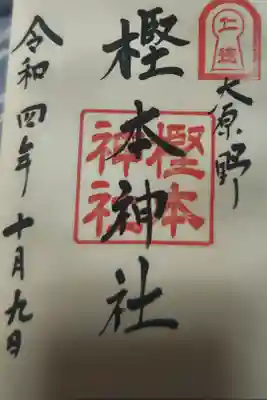 大原野
樫本神社
樫本
神社
令和四年十月九日